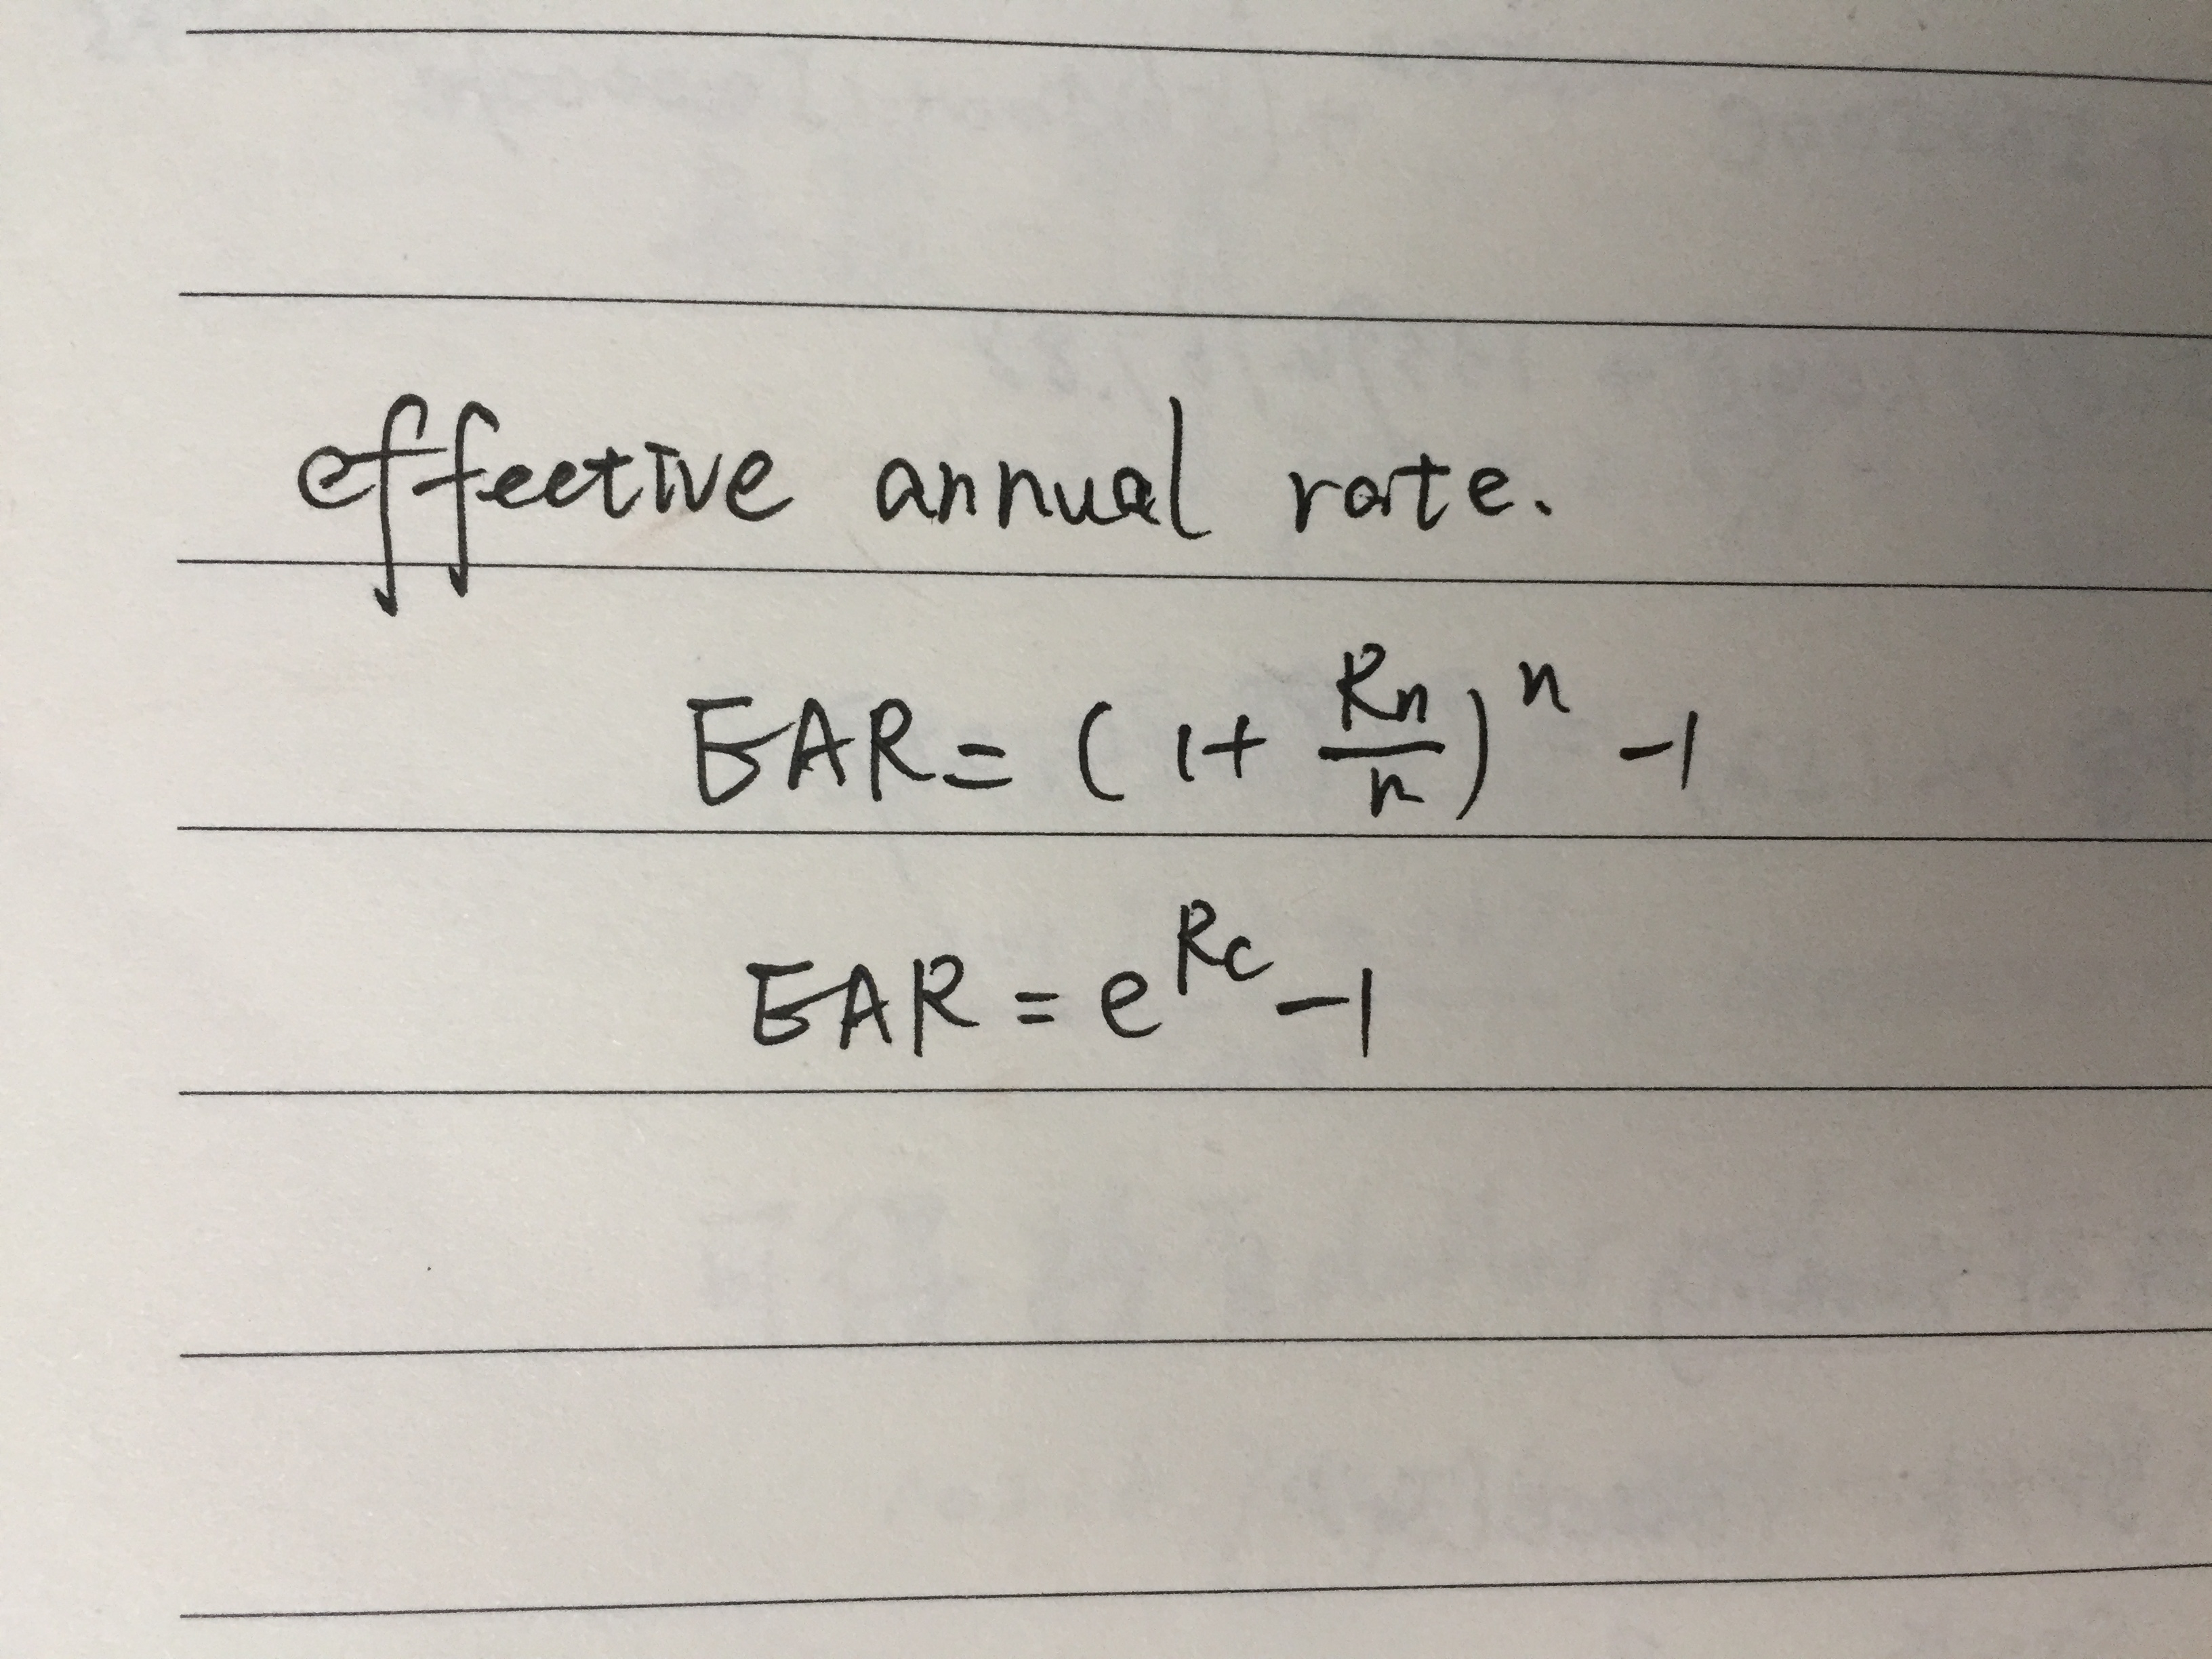 effective annual rate.
EAR = (1 + Rn/n)^n - 1
EAR = e^Rc - 1